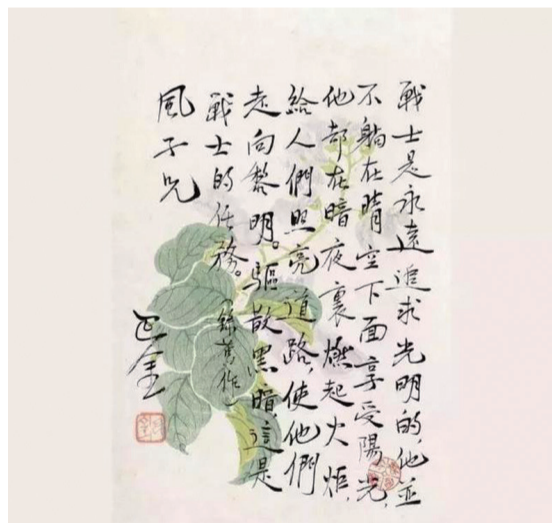 戰士是永遠追求光明的,他並
不躺在晴空下面享受陽光,
他卻在暗夜裏燃起火炬,
給人們照亮道路,使他們
走向黎明。驅散黑暗,這是
戰士的任務。
(錄舊作)
風子兄
巴金